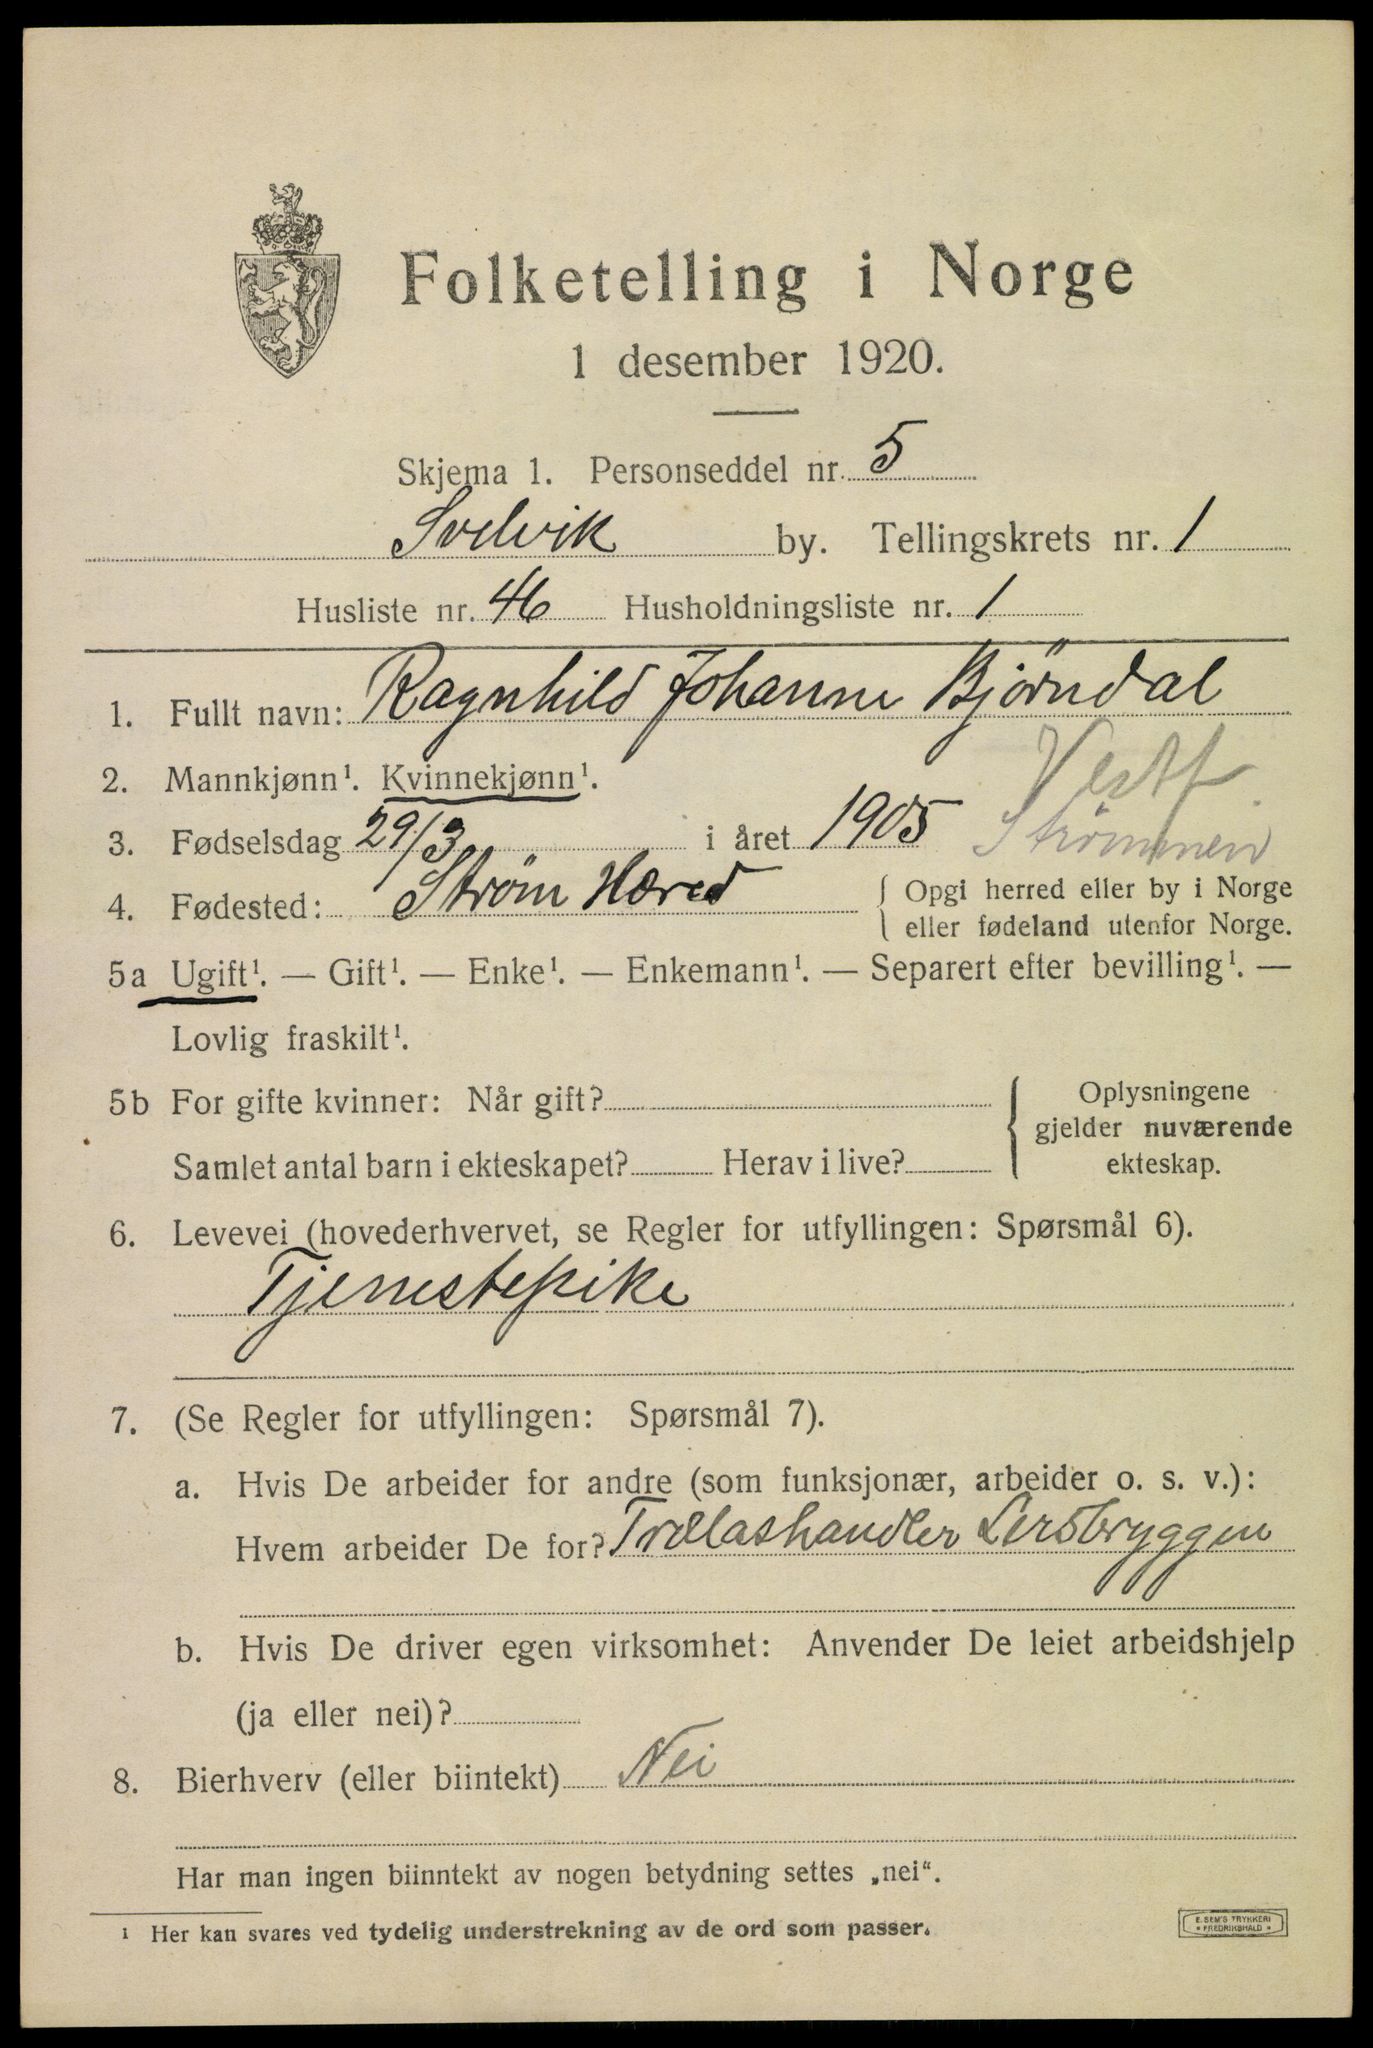 Folketelling i Norge
1 desember 1920.
Skjema 1. Personseddel nr. 5
Svelvik by. Tellingskrets nr. 1
Husliste nr. 46 Husholdningsliste nr. 1
1. Fullt navn: Ragnhild Johanne Bjørndal
2. Mannkjønn¹. Kvinnekjønn¹. Vestf
3. Fødselsdag 29/3 i året 1905 Strömmen
4. Fødested: Strøm Hered { Opgi herred eller by i Norge
eller fødeland utenfor Norge.
5a Ugift¹. — Gift¹. — Enke¹. — Enkemann¹. — Separert efter bevilling¹. —
Lovlig fraskilt¹.
5b For gifte kvinner: Når gift? { Oplysningene
gjelder nuværende
Samlet antal barn i ekteskapet? Herav i live? ekteskap.
6. Levevei (hovederhvervet, se Regler for utfyllingen: Spørsmål 6).
Tjenestepike
7. (Se Regler for utfyllingen: Spørsmål 7).
a. Hvis De arbeider for andre (som funksjonær, arbeider o. s. v.):
Hvem arbeider De for? Trælashandler Lersbryggen
b. Hvis De driver egen virksomhet: Anvender De leiet arbeidshjelp
(ja eller nei)?
8. Bierhverv (eller biintekt) Nei
Har man ingen biinntekt av nogen betydning settes „nei“.
¹ Her kan svares ved tydelig understrekning av de ord som passer.
E. SEM'S TRYKKERI
* FREDRIKSHALD *